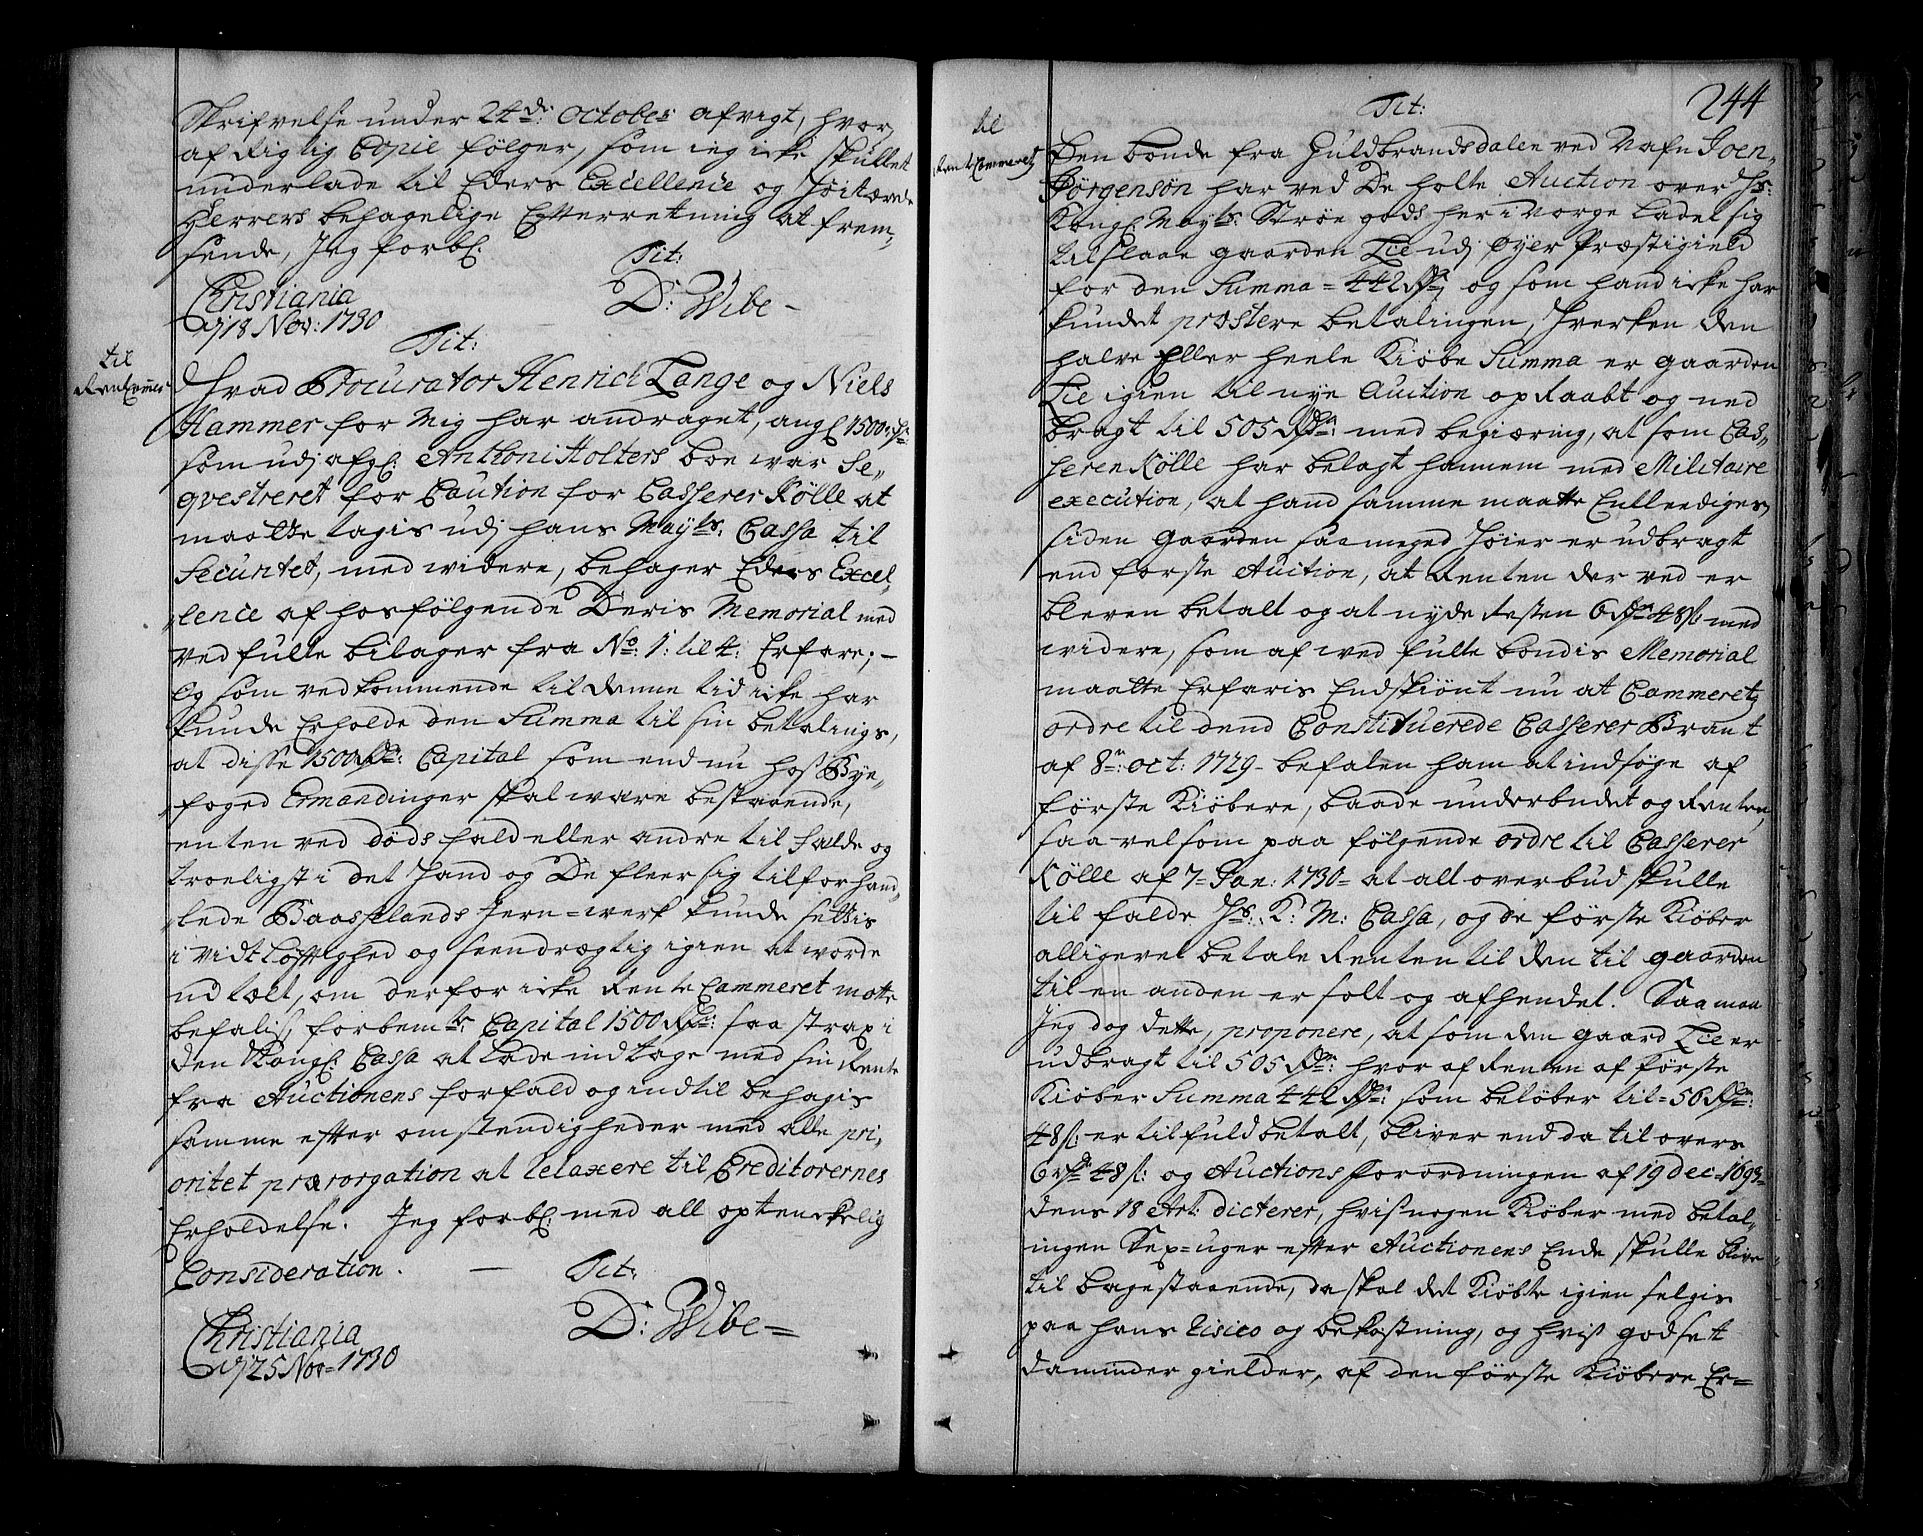 Skrifvelse under 24de: October afvigt, hvor,
af Rigtig Copie følger, som ieg icke skullet
underlade til Eders Excellence og Høitærede
Herrers behagelige Efterretning at frem,
sende, Jeg forbl:
Tit:
Christiania
D: Wibe -
d 18 Nov: 1730
Tit:
til
RenteCammer
Hvad Procurator Henrich Lange og Niels
Hammer for mig har andraget, angl 1500 rdr:
som udj afg: Anthoni Holters boe war Se,
qvestreret for Caution for Casserer Kølle at
maatte tagis udj hans Mayts: Cassa til
Securitet, med widere, behager Eders Excel,
lence af hosfølgende Deris Memorial med
vedfulte bilager fra No: 1: til 4: Erfare; -
Og som vedkommende til denne tid icke har
kunde Erholde den Summa til sin betalings,
at disse 1500 Rdr: Capital som end nu hos Bye,
foged Ermandinger skal ware bestaaende,
enten ved døds fald eller andre til falde og
troeligst i det Hand og De fleer sig tilforhand,
lede Baasselands Jern=werk kunde settis
i vidtløftighed og seendrægtig igien at worde
ud talt, om derfor icke Rente Cammeret motte
befalis, forbemte: Capital 1500 Rdr: saa strax i
den Kongl: Cassa at lade indtage med sin Rente
fra Auctionens forfald og indtil behagis
samme efter omstendigheder med alle pri,
oritet prærorgation at relaxere til Creditorernes
Erholdelse. Jeg forbl: med all optenckelig
Consideration. — Tit:
Christiania
D: Wibe =
d 25 Nov= 1730
244
Tit:
til
Rente Cammeret
Den bonde fra Guldbrandsdalen ved Nafn Joen,
Jørgensøn har ved De holte Auction over Hs:
Kongl Mayts: Strøe gods her i Norge ladet sig
tilslaae gaarden Lie udj Øyer Præstigield
for den Summa = 442 Rdr, og som hand icke har
kundet præstere betalingen, Hverken den
halve Eller heele Kiøbe Summa er gaarden
Lie igien til nye Auction opraabt og ned
bragt til 505 Rdr: med begiæring, at som Cas,
serer Kølle har belagt hannem med Militaire
execution, at hand samme maatte Entleediges,
siden gaarden saa meged Høier er udbragt
end første Auction, at Renten der ved er
bleven betalt og at nyde Resten 6 Rdr 48 s: med
widere, som af wed fulte bondis Memorial
maatte Erfaris Endskiønt nu at Cammeretz
ordre til dend Constituerede Casserer Brant
af 8de: oct: 1729 - befalen ham at indsøge af
første Kiøbere, baade underbudet og Renten,
saa vel som paa følgende ordre til Casserer
Kølle af 7= Jan: 1730 = at alt overbud skulle
til falde Hs: K: M: Cassa, og de første Kiøber
alligevel betale Renten til den til gaarden
til en anden er solt og afhendet. Saa maa
Jeg dog dette, proponere, at som den gaard Lie er
udbragt til 505 Rdr: hvor af Renten af første
Kiøber Summa 442 Rdr: som beløber til = 56 Rdr:
48 s: er tilfuld betalt, bliver end da til overs
6 rd 48 s: og Auctions Forordningen af 19 Dec: 1693=
dens 18 Art: dicterer, hvis nogen Kiøber med betal,
ingen Sex=uger efter Auctionens Ende skulle blive
til bagestaaende, da skal det Kiøbte igien selgis
paa hans risico og bekostning, og hvis godset
da minder gielder, af den første Kiøbere Er=